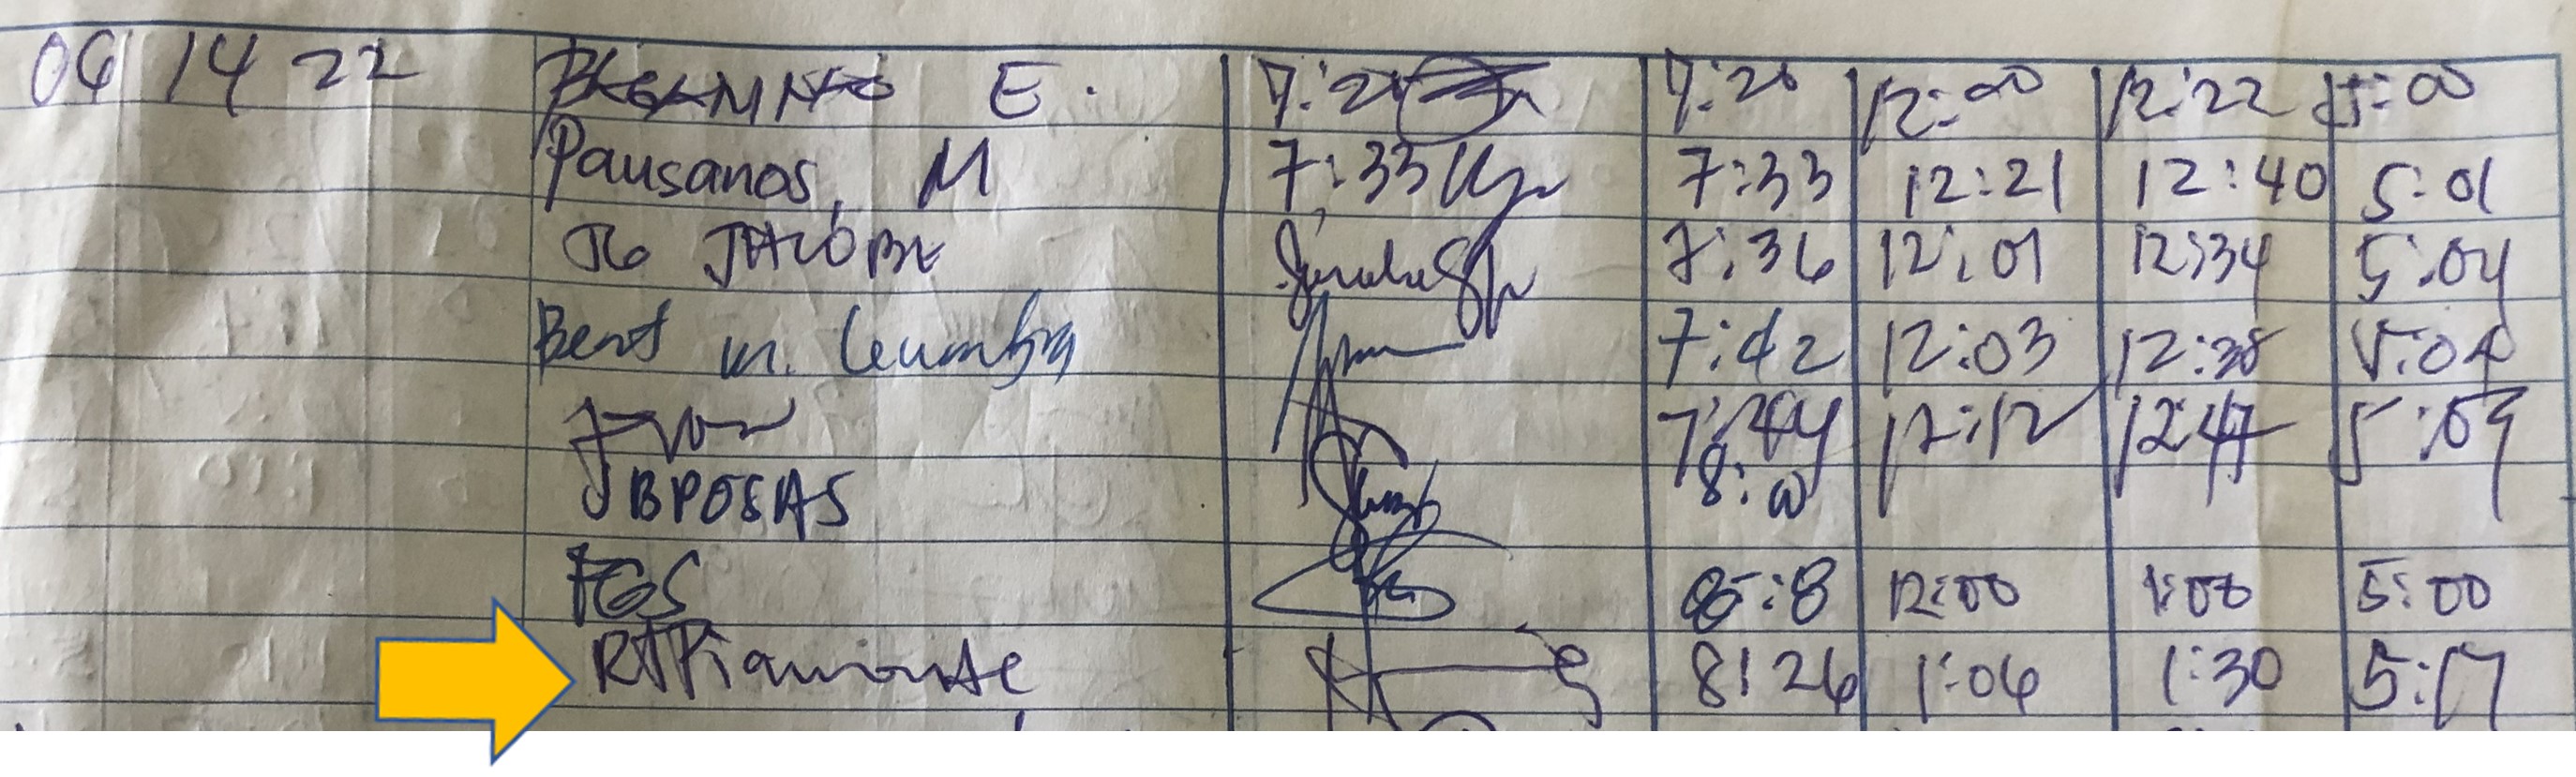 06 14 22 E. 7:20 7:20 12:00 12:22 5:00
Pausanos, M 7:33 7:33 12:21 12:40 5:01
JG JACOBE 7:36 12:01 12:34 5:04
Bent m. 7:42 12:03 12:38 5:04
7:44 12:12 12:47 5:09
JBPOSAS 8:00
FGS 12:00 1:00 5:00
RTPiamonte 8:26 1:06 1:30 5:17